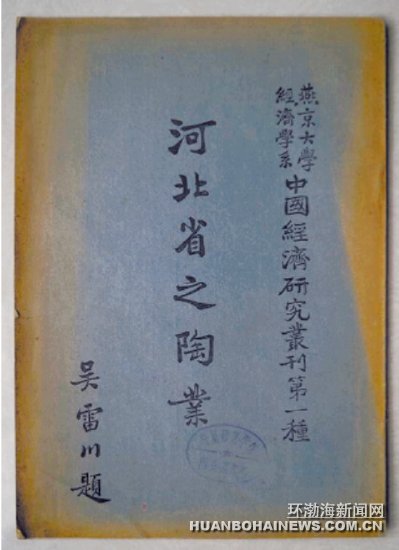 燕京大學
經濟學系
中國經濟研究叢刊第一種
河北省之陶業
吴雷川題
环渤海新闻网
HUANBOHAINEWS.COM.CN